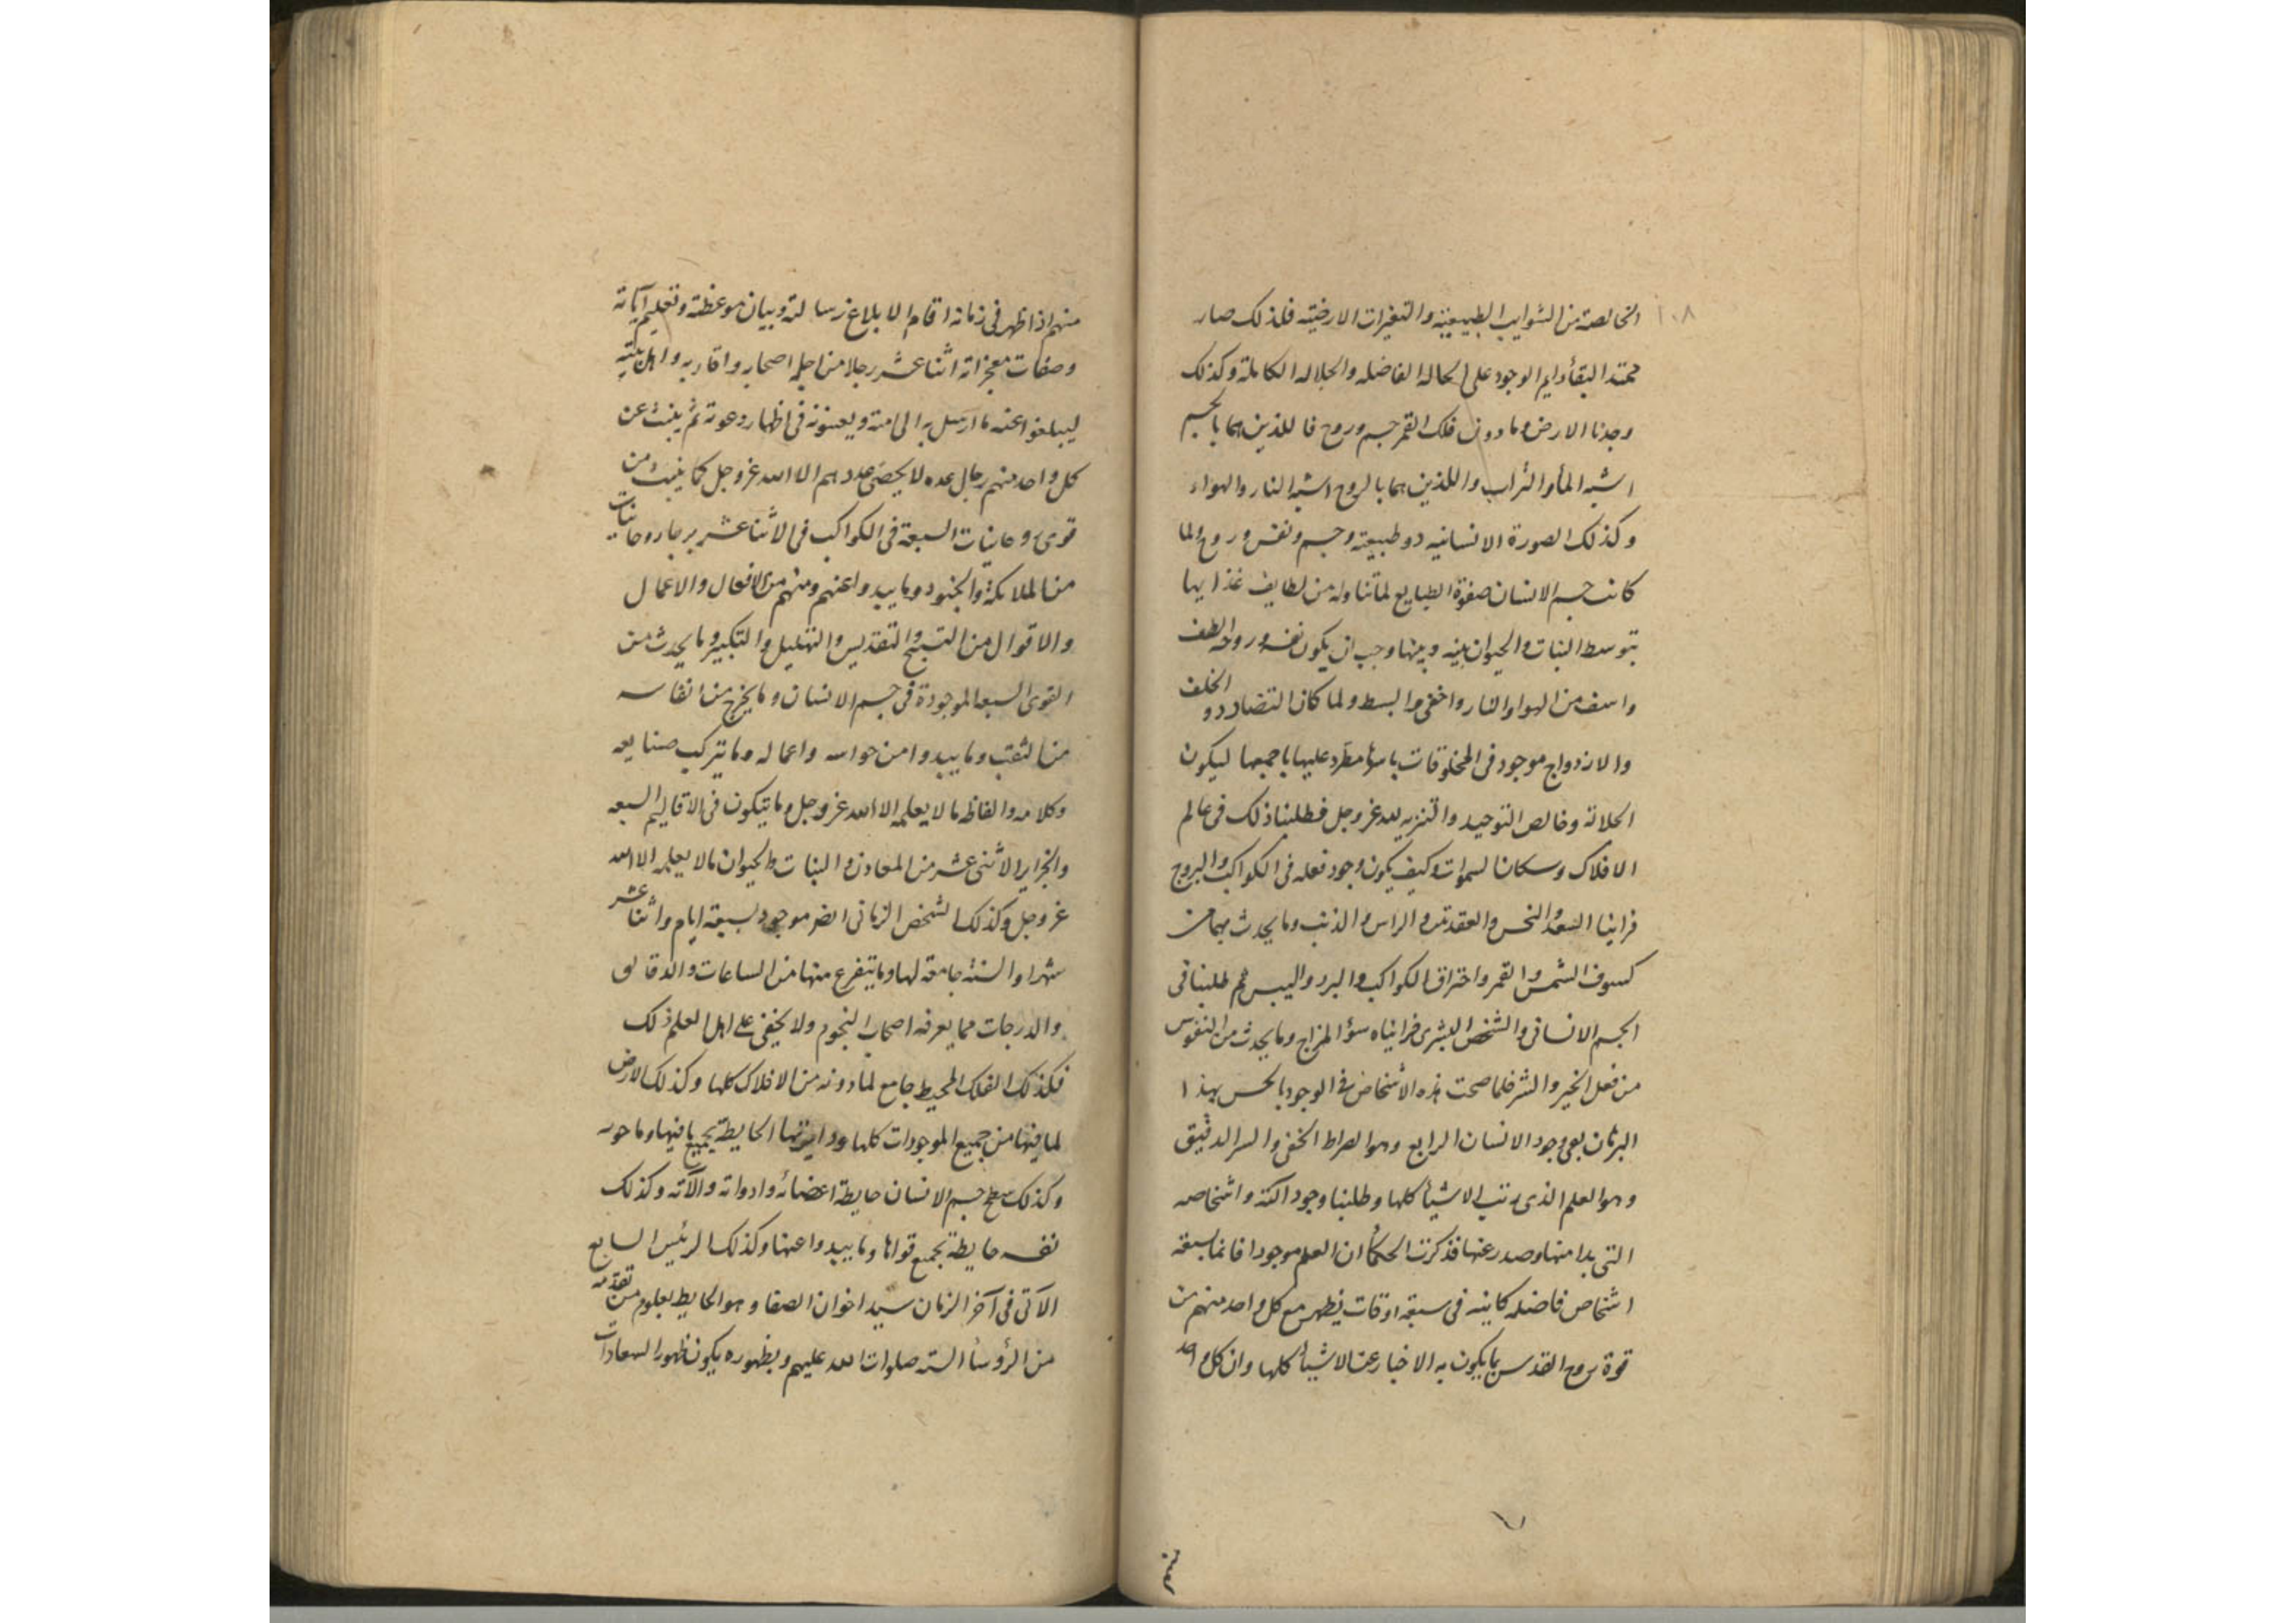 ١٠٨
الخالصة من الشوايب الطبيعية والتغيرات الارضيه فلذلك صار
ممتد البقأ دايم الوجود على الحالة الفاضله والجلاله الكامله وكذلك
وجدنا الارض وما دون فلك القمر جسم وروح فاللذين هما بالجسم
اشبه المأ والتراب واللذين هما بالروح اشبه النار والهواء
وكذلك الصورة الانسانيه ذو طبيعته وجسم ونفس وروح ولما
كانت جسم الانسان صفوة الطبايع لما تناوله من لطايف غذايها
بتوسط النبات والحيوان بينه وبينها وجب ان يكون نفسه وروحه الطف
واشف من الهوا والنار واخفى وابسط ولما كان التضاد والخلف
والازدواج موجود فى المخلوقات باسرها مطرد عليها باجمعها ليكون
الجلالة وخالص التوحيد والتنزيه لله عز وجل فطلبنا ذلك فى عالم
الافلاك وسكان السموات وكيف يكون وجود فعله فى الكواكب والبروج
فراينا السعد والنحس والعقدتين والراس والذنب وما يحدث بهما من
كسوف الشمس والقمر واحتراق الكواكب والبرد واليبس ثم طلبنا فى
الجسم الانسانى والشخص البشرى فرايناه سؤ المزاج وما يحدث من النفوس
من فعل الخير والشر فلما صحت هذه الأشخاص فى الوجود بالحس بهذا
البرهان بقى وجود الانسان الرابع وهو الصراط الخفى والسر الدقيق
وهو العلم الذى رتب الاشيأ كلها وطلبنا وجود الكنه واشخاصه
التى بدا منها وصدر عنها فذكرت الحكمأ ان العلم موجودا قائما بسبعة
اشخاص فاضله كاينه فى سبعة اوقات يظهر مع كل واحد منهم من
قوة روح القدس ما يكون به الاخبار عن الاشيأ كلها وان كل واحد
منهم اذا ظهر فى زمانه اقام لابلاغ رسالته وبيان موعظته وتعليم آياته
وصفات معجزاته اثنا عشر رجلا من اجله اصحابه واقاربه واهل بيته
ليبلغوا عنه ما ارسل به الى امته ويعينونه فى اظهار دعوته ثم ينبث عن
كل واحد منهم رجال عده لا يحصى عددهم الا الله عز وجل كما ينبث من
قوى روحانيات السبعة فى الكواكب فى الاثنا عشر برجا روحانيات
من الملائكة والجنود وما يبدوا عنهم ومنهم من الافعال والاعمال
والاقوال من التسبيح والتقديس والتهليل والتكبير وما يحدث من
القوى السبعه الموجودة فى جسم الانسان وما يخرج من انفاسه
من الثقب وما يبدوا من حواسه واعماله وما يتركب صنايعه
وكلامه والفاظه ما لا يعلمه الا الله عز وجل وما يتكون فى الاقاليم السبعه
والجزاير الاثنى عشر من المعادن والنبات والحيوان ما لا يعلمه الا الله
عز وجل وكذلك الشخص الزمانى ايضا موجود بسبعة ايام واثنا عشر
شهرا والسنة جامعة لها وما يتفرع منها من الساعات والدقايق
والدرجات مما يعرفه اصحاب النجوم ولا يخفى على اهل العلم ذلك
فكذلك الفلك المحيط جامع لما دونه من الافلاك كلها وكذلك الارض
لما فيها من جميع الموجودات كلها ودايرتها الحايطة بجميع ما فيها وما حوت
وكذلك سطح جسم الانسان حايطة اعضائه وادواته وآلاته وكذلك
نفسه حايطة بجميع قواها وما يبدوا عنها وكذلك الرئيس السابع
الآتى فى آخر الزمان سيد اخوان الصفا وهو الحايط بعلوم من تقدمه
من الرؤسأ السته صلوات الله عليهم وبظهوره يكون ظهور السعادات
منهم